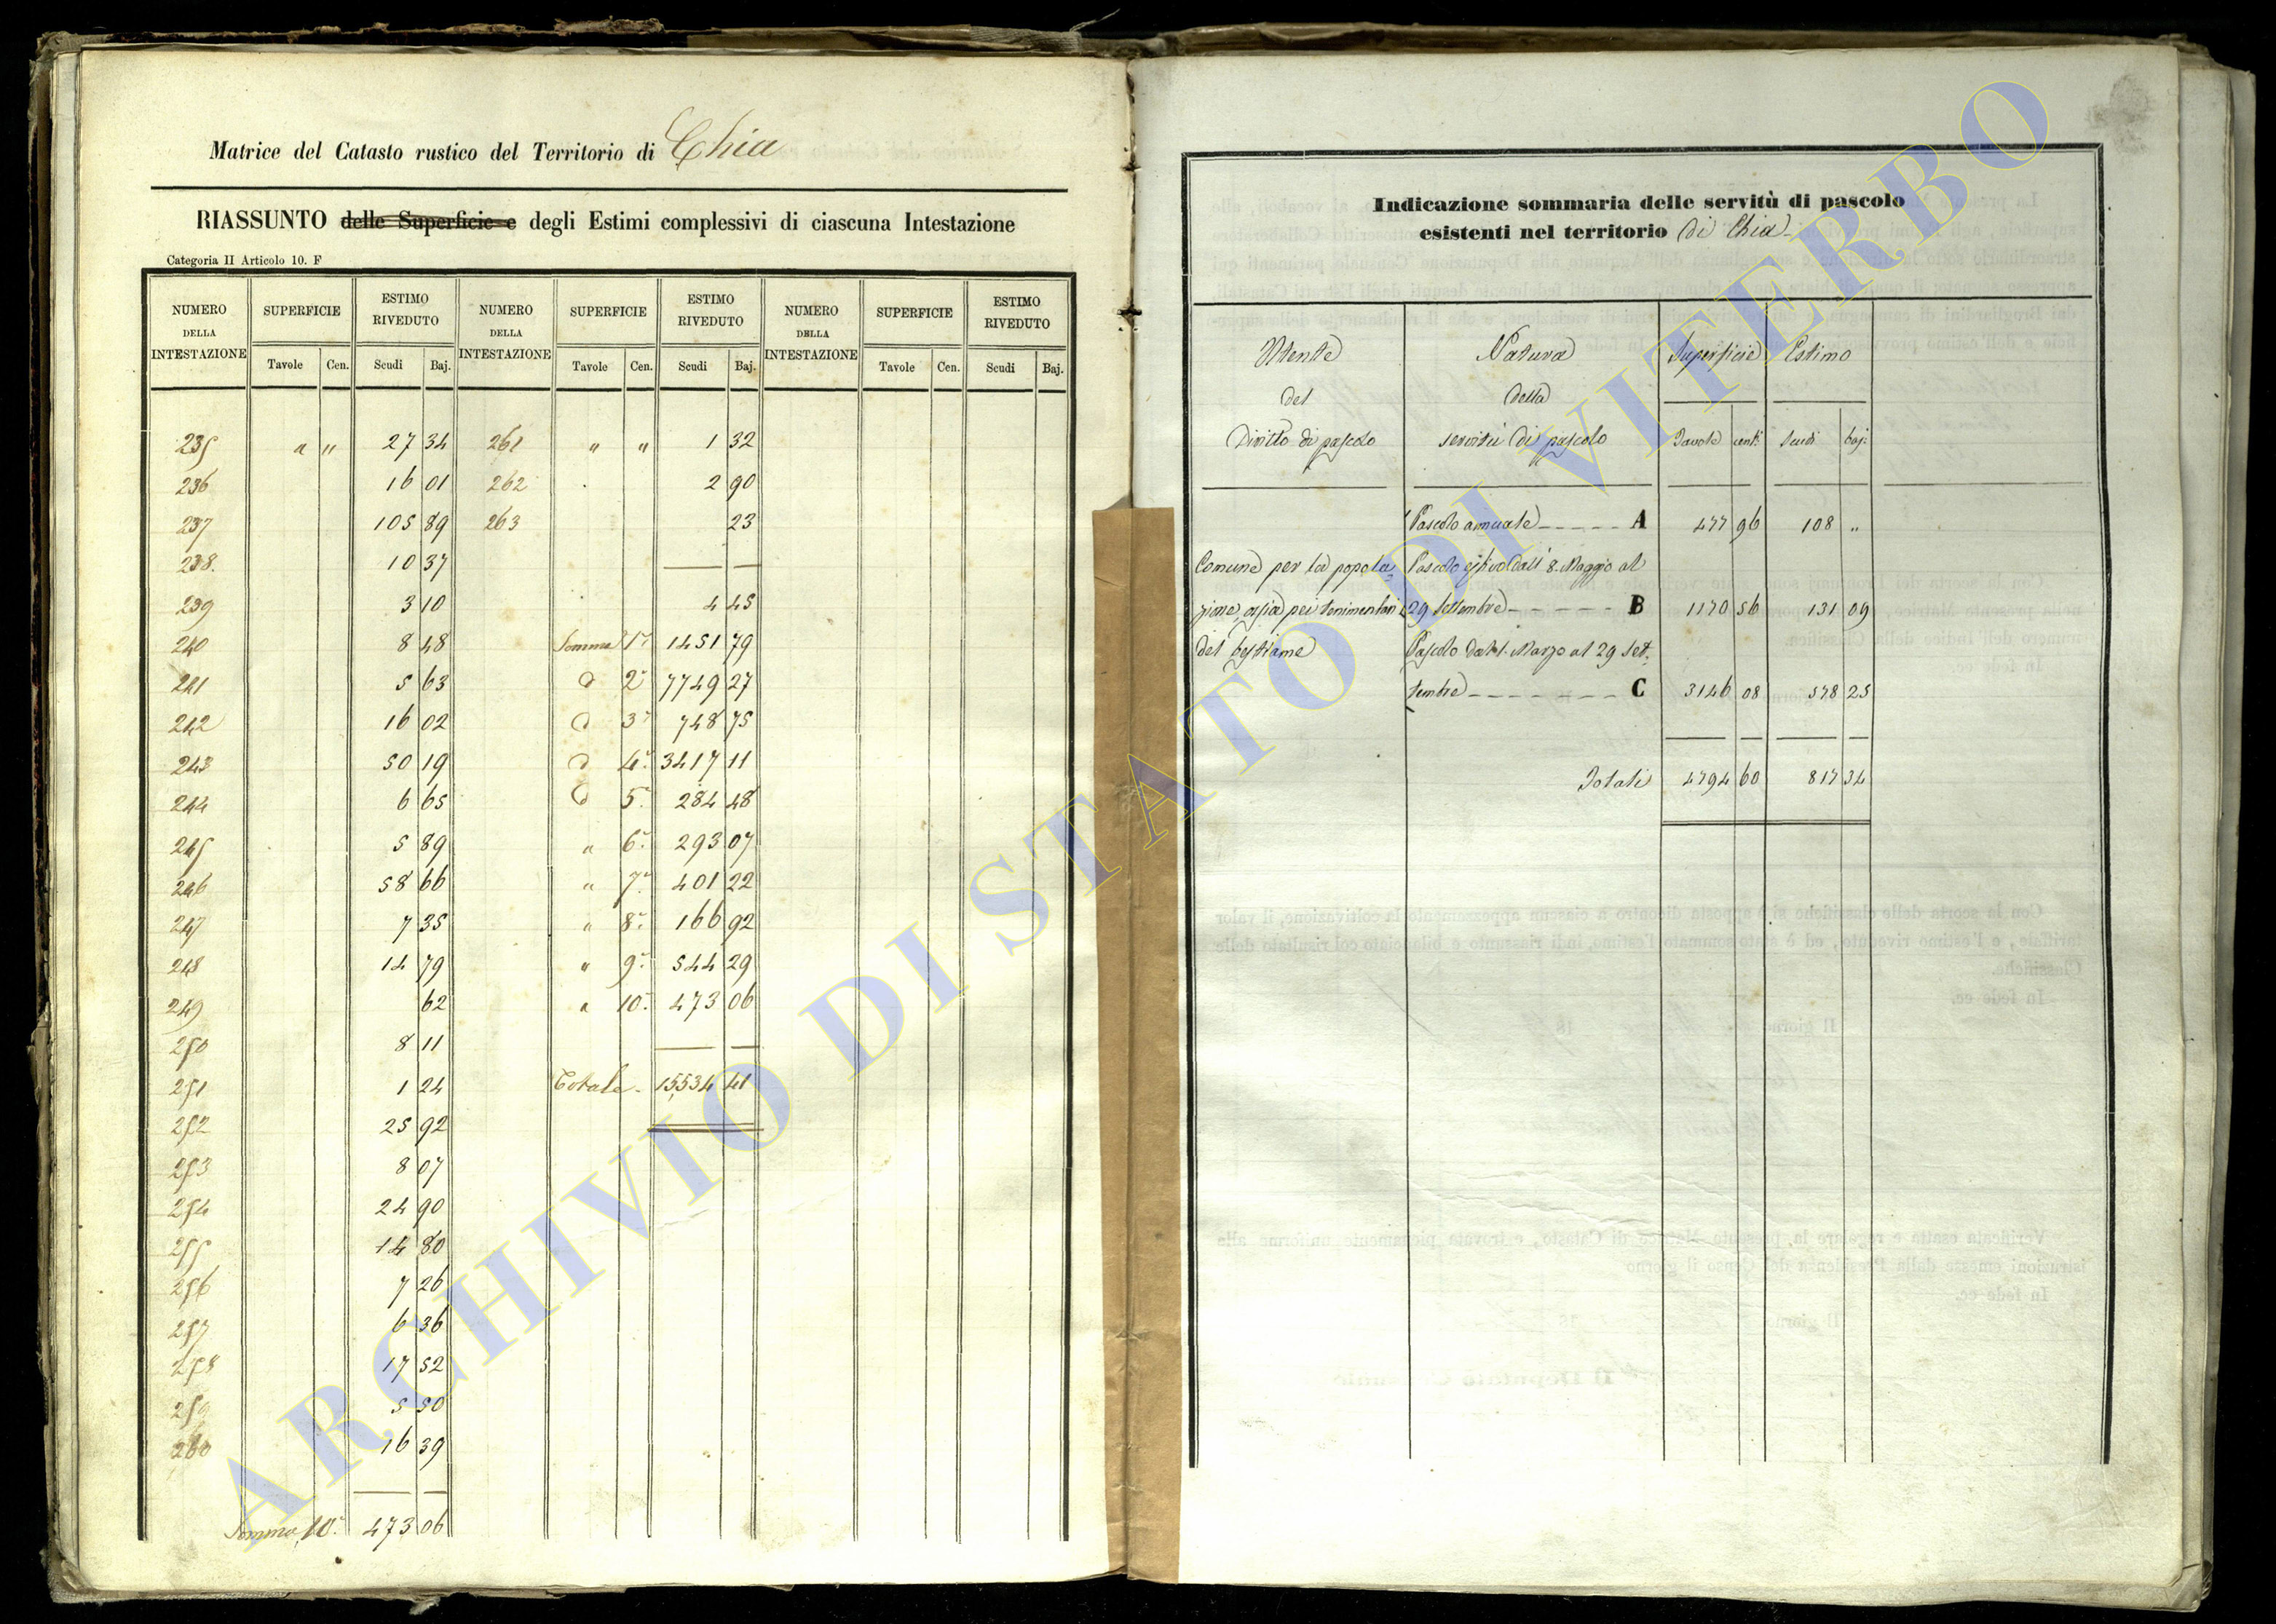 Matrice del Catasto rustico del Territorio di Chia
RIASSUNTO delle Superficie e degli Estimi complessivi di ciascuna Intestazione
Categoria II Articolo 10. F
NUMERO DELLA INTESTAZIONE SUPERFICIE ESTIMO RIVEDUTO NUMERO DELLA INTESTAZIONE SUPERFICIE ESTIMO RIVEDUTO NUMERO DELLA INTESTAZIONE SUPERFICIE ESTIMO RIVEDUTO
Tavole Cen. Scudi Baj. Tavole Cen. Scudi Baj. Tavole Cen. Scudi Baj.
235 " " 27 34 261 " " 1 32
236 16 01 262 2 90
237 105 89 263 23
238. 10 37
239 3 10 4 45
240 8 48 Somma 1a 1451 79
241 5 63 d 2a 7749 27
242 16 02 d 3a 748 75
243 50 19 d 4a 3417 11
244 6 65 d 5a 284 48
245 5 89 " 6a 293 07
246 58 66 " 7a 401 22
247 7 35 " 8a 166 92
248 14 79 " 9a 544 29
249 62 " 10a 473 06
250 8 11
251 1 24 Totale 15534 41
252 25 92
253 8 07
254 24 90
255 14 80
256 7 26
257 6 36
258 17 52
259 5 50
260 16 39
Somma 10a 473 06
Indicazione sommaria delle servitù di pascolo
esistenti nel territorio di Chia
Utente Natura Superficie Estimo
del della
Diritto di pascolo servitù di pascolo Tavole centi Scudi baj.
Pascolo annuale A 477 96 108 "
Comune per la popola= Pascolo estivo dall' 8. Maggio al
zione, ossia pei tenimentari 29 Settembre B 1170 56 131 09
del bestiame Pascolo dal 1. Marzo al 29 Set=
tembre C 3146 08 578 25
Totali 4794 60 817 34
ARCHIVIO DI STATO DI VITERBO